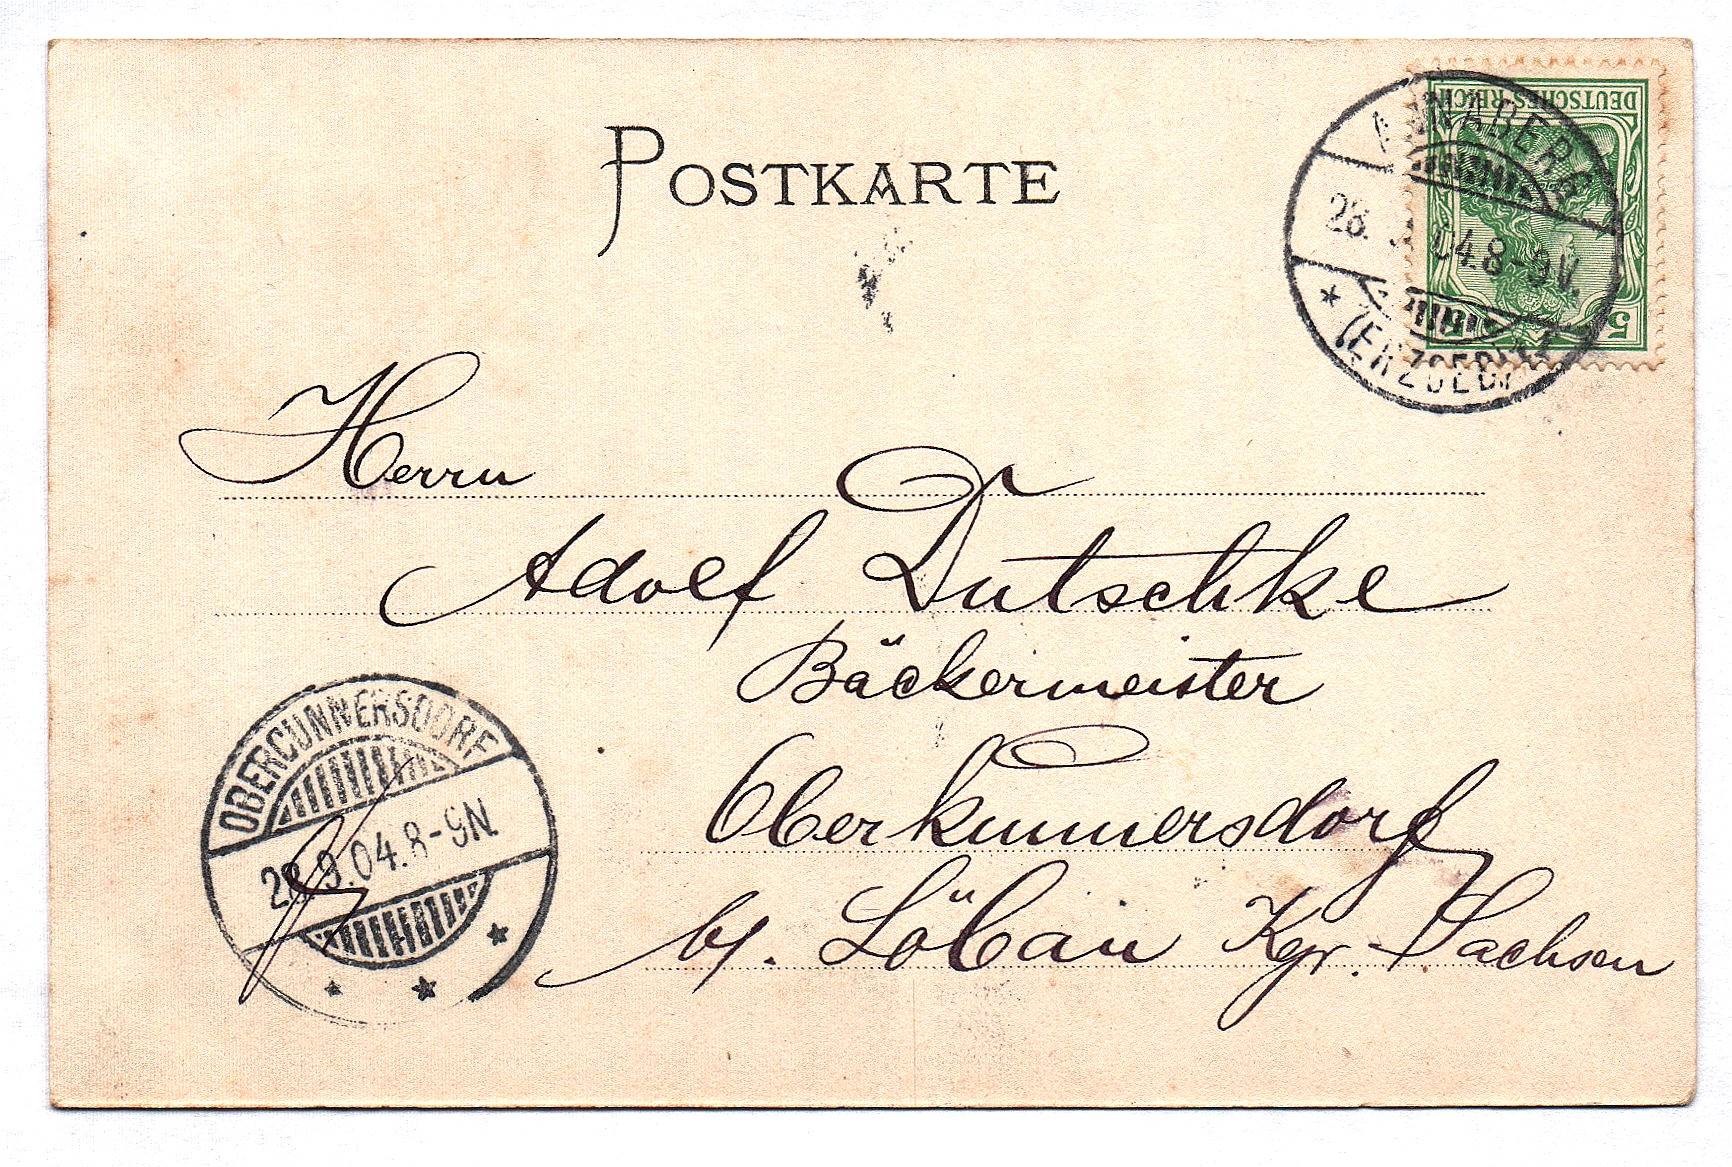 POSTKARTE
DEUTSCHES REICH
5
ANNABERG
28. 04. 8-9V.
(ERZGEB)
Herrn
Adolf Dutschke
Bäckermeister
Oberkunnersdorf
b/. Löbau Kgr. Sachsen
OBERCUNNERSDORF
28.9.04. 8-9N.